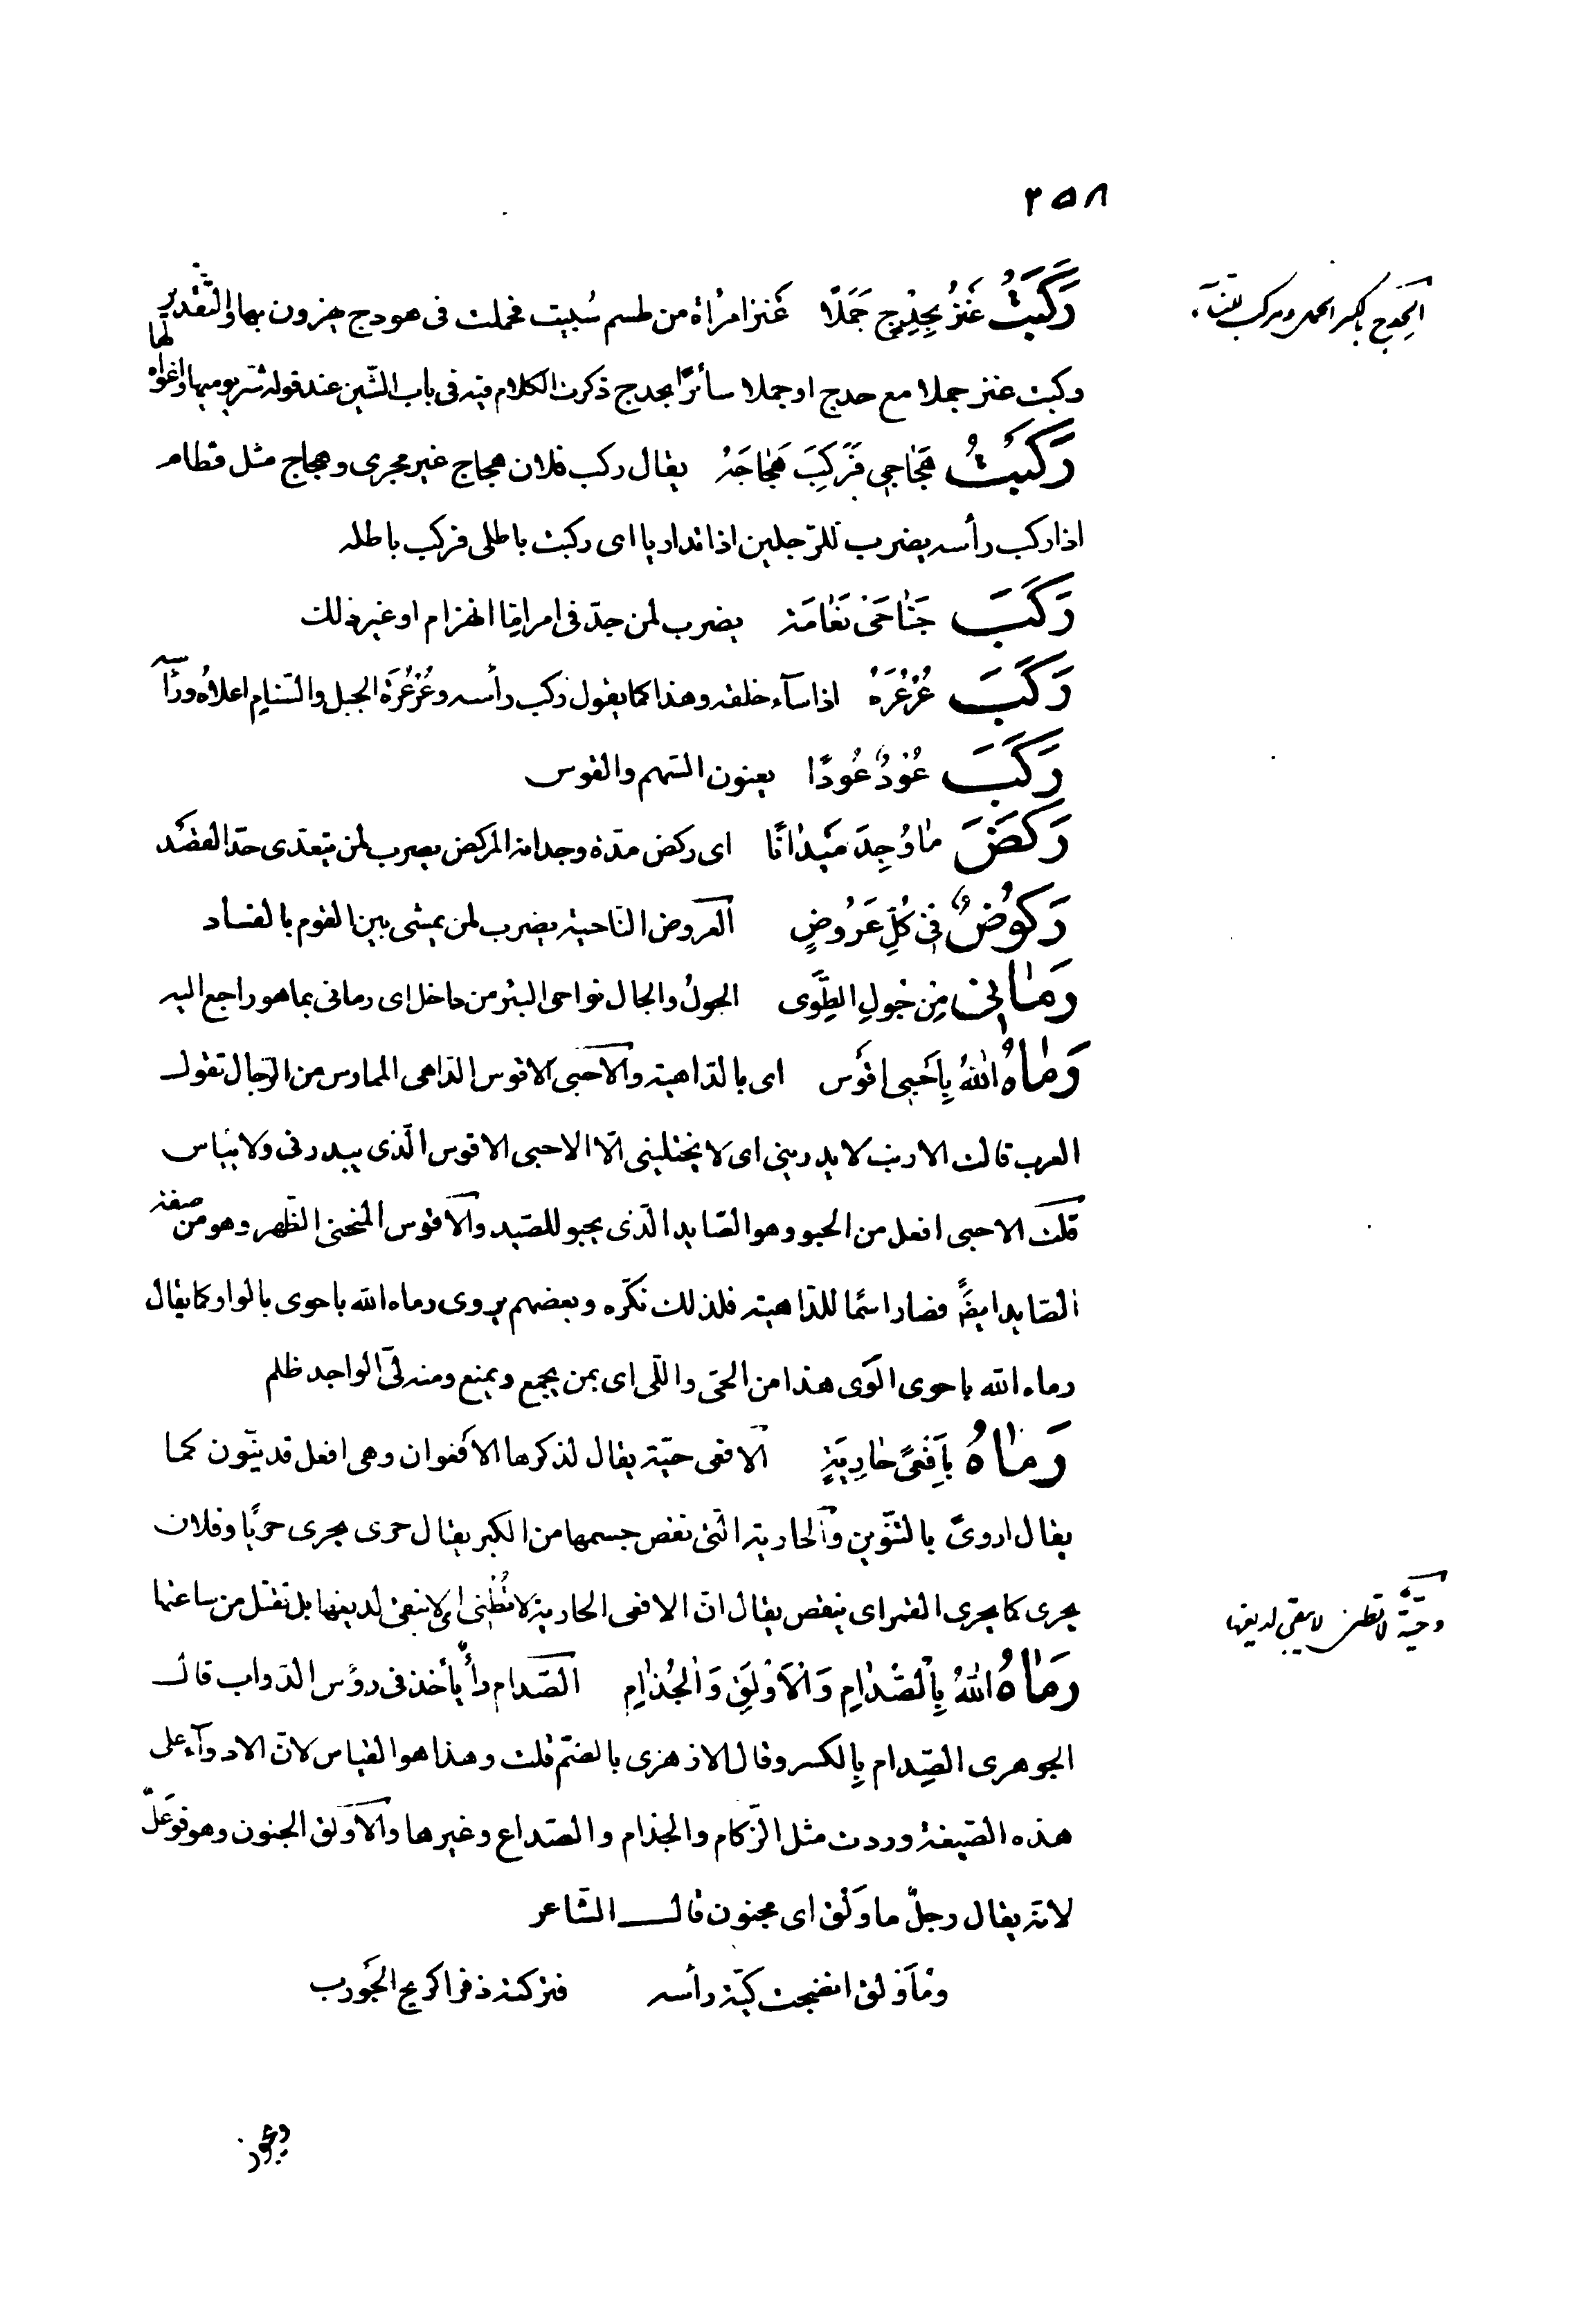 ٢٥٨
رَكِبَتْ عَنْزُ بِحِدْجٍ جَمَلًا عَنز امرأة من طسم سُبيت فحملت فى هودج يهزءون بها والتّقدير
ركبت عنز جملا مع حدج او جملا سائرًا بحدج ذكرت الكلام فيه فى باب الشّين عند قوله شرّ يوميها واغواه لها
رَكِبْتُ هَجَاجِى فَرَكِبَ هَجَاجَهُ يقال ركب فلان هجاج غير مجرى وهجاج مثل قطام
اذا ركب رأسه يضرب للرّجلين اذا تداريا اى ركبت باطلى فركب باطله
رَكِبَ جَنَاحَىْ نَعَامَةٍ يضرب لمن جدّ فى امر امّا انهزام او غير ذلك
رَكِبَ عُرْعُرَهُ اذا سآء خلقه وهذا كما يقول ركب رأسه وعُرْعُرَة الجبل والسّنام اعلاه ورأسه
رَكِبَ عُوْدٌ عُودًا يعنون السّهم والقوس
رَكَضَ مَا وُجِدَ مَيْدَانًا اى ركض مدّة وجدانه المركض يضرب لمن يتعدّى حدّ القصد
رَكُوْضٌ فِىْ كُلِّ عَرُوْضٍ العروض النّاحية يضرب لمن يمشى بين القوم بالفساد
رَمَانِى مِنْ جُولِ الطَّوِىّ الجول والجال نواحى البئر من داخل اى رمانى بما هو راجع اليه
رَمَاهُ اللهُ بِاَحْبَى اقْوَس اى بالدّاهية والاحبى الاقوس الدّاهى الممارس من الرّجال تقول
العرب قالت الارنب لا يدرينى اى لا يختلينى الّا الاحبى الاقوس الّذى يبدرنى ولا ييأس
قلت الاحبى افعل من الحبو وهو الصّايد الّذى يحبو للصّيد والاقوس المنحنى الظّهر وهو من صفة
الصّايد ايضًا فصار اسمًا للدّاهية فلذلك نكّره وبعضهم يروى رماه الله باحوى بالواو كما يقال
رماه الله باحوى الوى هذا من الحىّ واللّى اى بمن يجمع ويمنع ومنه لىّ الواجد ظلم
رَمَاهُ بِاَفْعًى حَارِيَةٍ الافعى حيّة يقال لذكرها الافعوان وهى افعل قد ينوّن كما
يقال اروىً بالتّنوين والحارية الّتى نقص جسمها من الكبر يقال حرى يحرى حريًا وفلان
يحرى كما يحرى القمر اى ينقص يقال انّ الافعى الحارية لا تُطْنِى اى لا تبقى لديغها بل تقتل من ساعتها
رَمَاهُ اللهُ بِالصُّدَامِ وَالْاَوْلَقِ وَالْجُذَامِ الصّدام داء يأخذ فى رؤس الدّواب قال
الجوهرى الصِّدام بالكسر وقال الازهرى بالضّم قلت وهذا هو القياس لانّ الادوآء على
هذه الصّيغة وردت مثل الزّكام والجذام والصّداع وغيرها والاولق الجنون وهو فوعل
لانّه يقال رجل مأولق اى مجنون قال الشّاعر
ومأولق انضجت كيّة رأسه فتركته ذفرا كريح الجورب
الحِدج بالكسر الحمل ومركب للنسآء
وحيّة لا تطنى لا يبقى لديغها